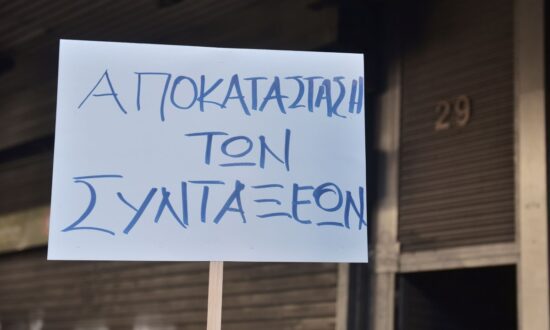 ΑΠΟΚΑΤΑΣΤΑΣΗ
ΤΩΝ
ΣΥΝΤΑΞΕΩΝ
29